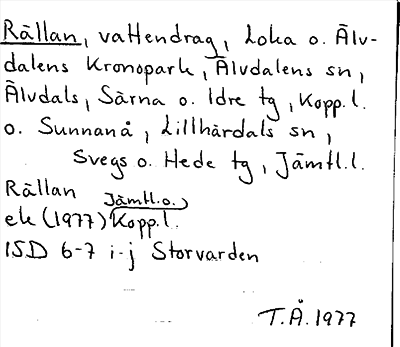 Rällan, vattendrag, Loka o. Älv-
dalens Kronopark, Älvdalens sn,
Älvdals, Särna o. Idre tg, Kopp.l.
o. Sunnanå, Lillhärdals sn,
Svegs o. Hede tg, Jämtl.l.
Rällan
Jämtl.o.
ek (1977) Kopp.l.
ISD 6-7 i-j Storvarden
T.Å. 1977